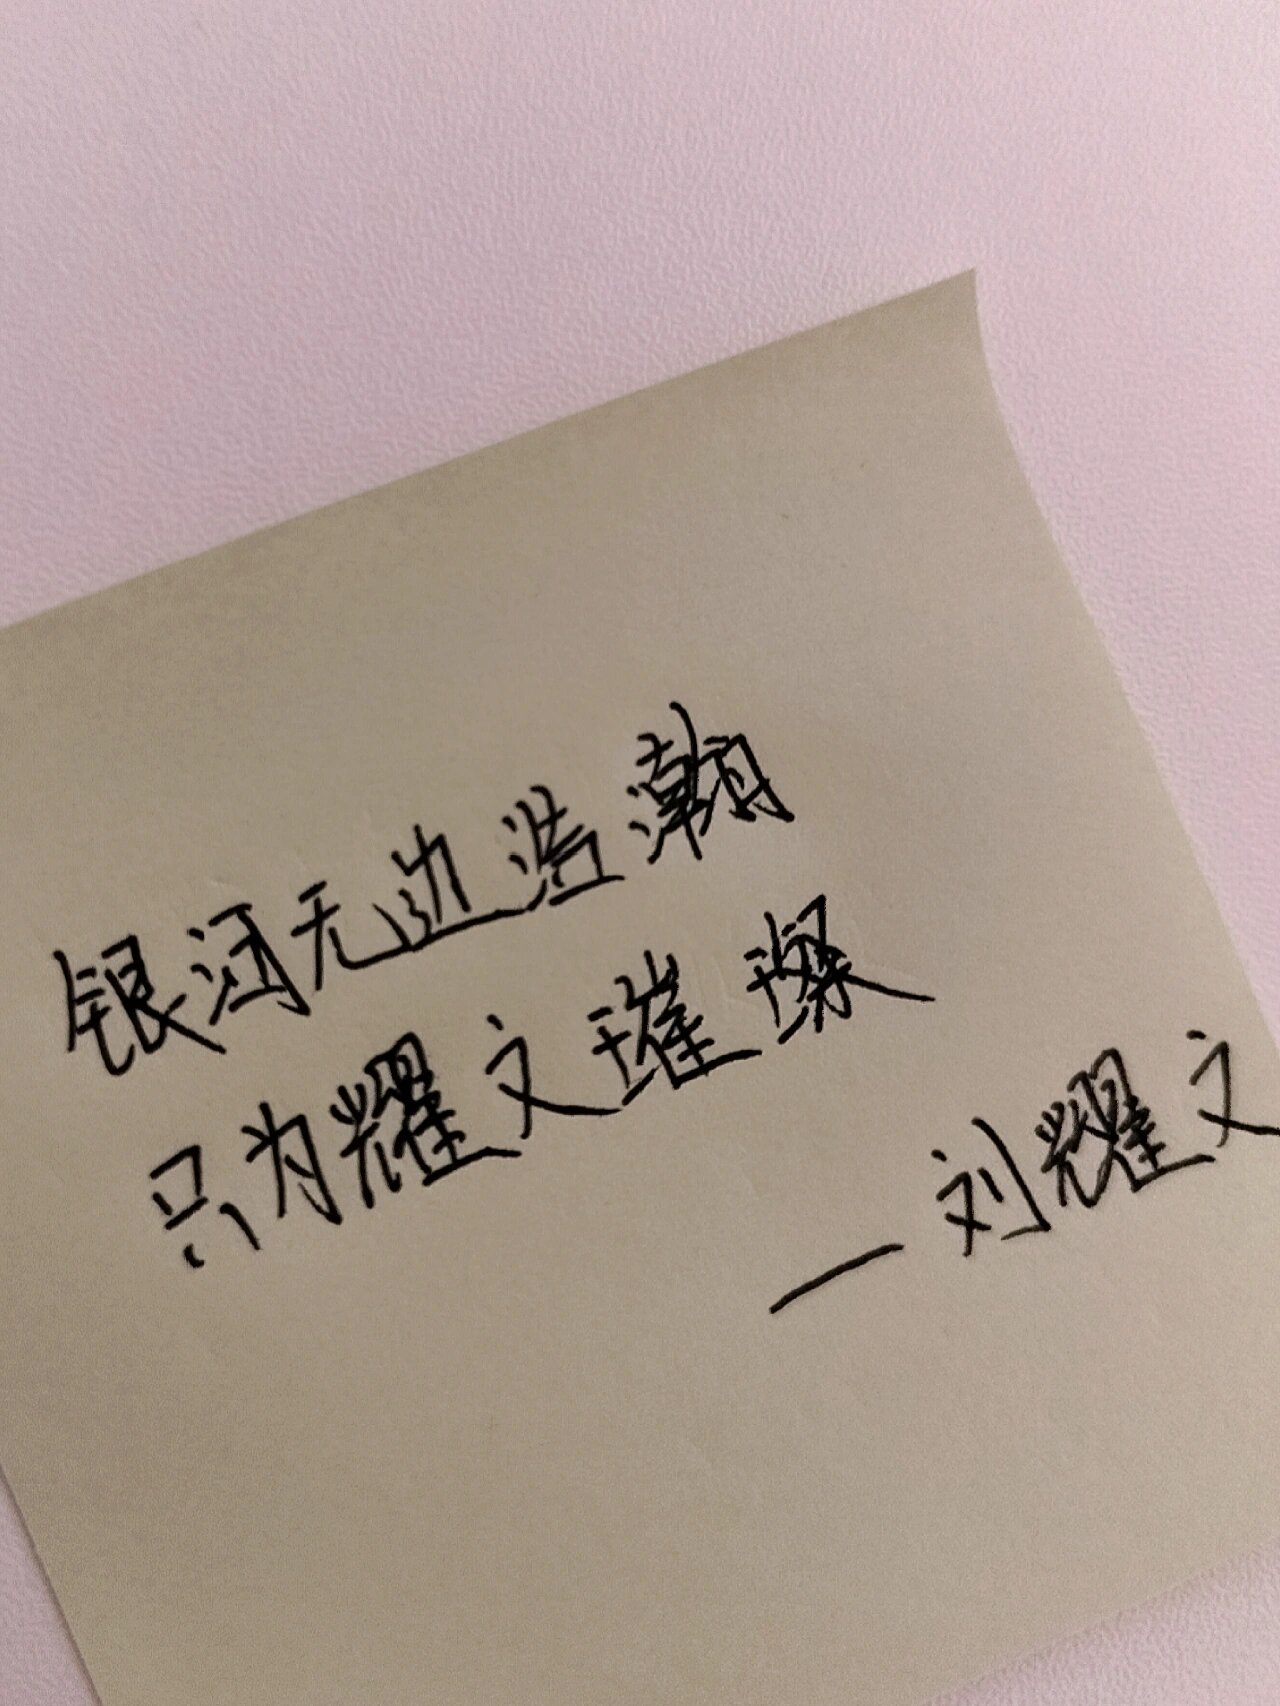 银河无边浩瀚
只为耀文璀璨
—刘耀文